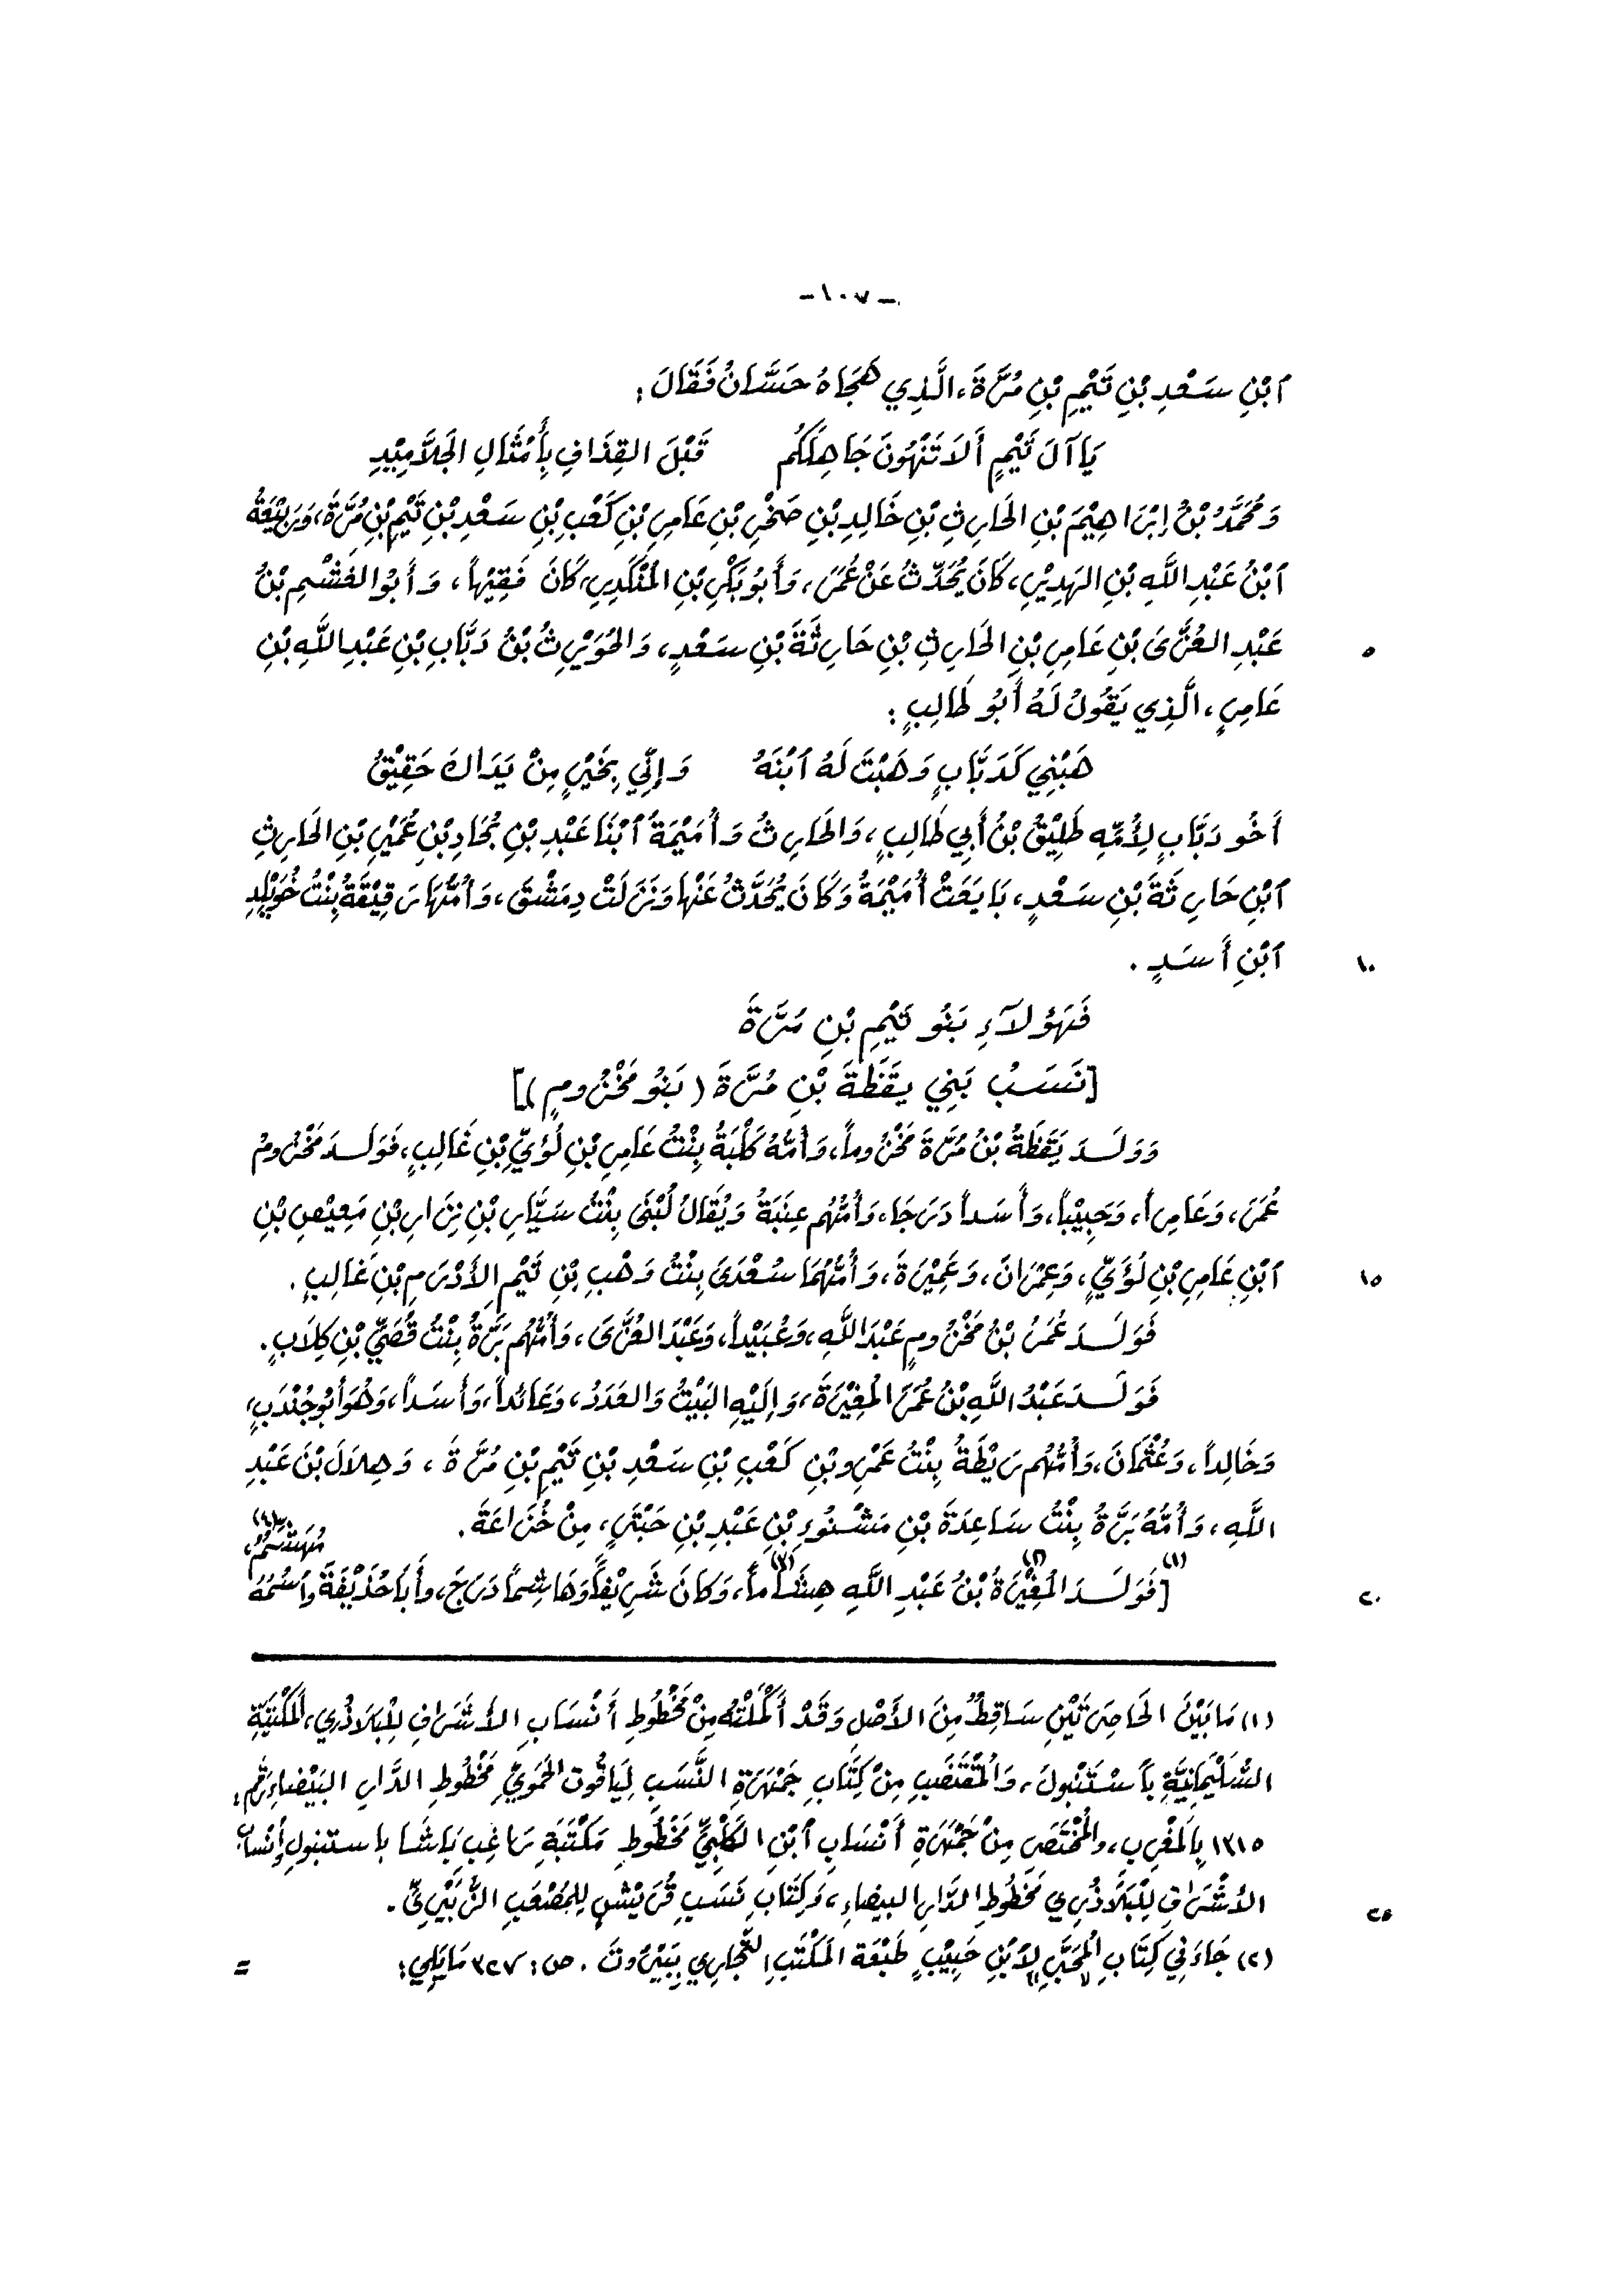 -١٠٧-
ٱبْنِ سَعْدِ بْنِ تَيْمِ بْنِ مُرَّةَ، الَّذِي هَجَاهُ حَسَّانُ فَقَالَ:
يَا آلَ تَيْمٍ أَلاَ تَنْهَوْنَ جَاهِلَكُم قَبْلَ القِذَافِ بِأَمْثَالِ الجَلاَمِيْدِ
وَمُحَمَّدُ بْنُ إِبْرَاهِيْمَ بْنِ الحَارِثِ بْنِ خَالِدِ بْنِ صَخْرِ بْنِ عَامِرِ بْنِ كَعْبِ بْنِ سَعْدِ بْنِ تَيْمِ بْنِ مُرَّةَ، وَرَبِيْعَةُ
ٱبْنُ عَبْدِ اللَّهِ بْنِ الهَدِيْرِ، كَانَ يُحَدِّثُ عَنْ عُمَرَ، وَأَبُو بَكْرِ بْنِ المُنْكَدِرِ، كَانَ فَقِيْهاً، وَأَبُو الغَشْمِ بْنُ
٥ عَبْدِ العُزَّى بْنِ عَامِرِ بْنِ الحَارِثِ بْنِ حَارِثَةَ بْنِ سَعْدٍ، وَالحُوَيْرِثُ بْنُ دَبَّابِ بْنِ عَبْدِ اللَّهِ بْنِ
عَامِرٍ، الَّذِي يَقُولُ لَهُ أَبُو طَالِبٍ:
هَبْنِي كَدَبَّابٍ وَهَبْتَ لَهُ ٱبْنَهُ وَإِنِّي بِخَيْرٍ مِنْ يَدَاكَ حَقِيْقُ
أَخُو دَبَّابٍ لِأُمِّهِ طَلِيْقُ بْنُ أَبِي طَالِبٍ، وَالحَارِثُ وَأُمَيْمَةُ ٱبْنَا عَبْدِ بْنِ بُجَادِ بْنِ عُمَيْرِ بْنِ الحَارِثِ
ٱبْنِ حَارِثَةَ بْنِ سَعْدٍ، بَايَعَتْ أُمَيْمَةُ وَكَانَ يُحَدَّثُ عَنْهَا وَنَزَلَتْ دِمَشْقَ، وَأُمُّهَا رَقِيْقَةُ بِنْتُ خُوَيْلِدِ
١٠ ٱبْنِ أَسَدٍ.
فَهَؤُلاَءِ بَنُو تَيْمِ بْنِ مُرَّةَ
[نَسَبُ بَنِي يَقَظَةَ بْنِ مُرَّةَ (بَنُو مَخْزُومٍ)]
وَوَلَدَ يَقَظَةُ بْنُ مُرَّةَ مَخْزُوماً، وَأُمُّهُ كَلْبَةُ بِنْتُ عَامِرِ بْنِ لُؤَيِّ بْنِ غَالِبٍ، فَوَلَدَ مَخْزُومُ
عُمَرَ، وَعَامِراً، وَحَبِيْباً، وَأَسَداً دَرَجَا، وَأُمُّهُم عِنَبَةُ وَيُقَالُ لُبْنَى بِنْتُ سَيَّارِ بْنِ نِزَارِ بْنِ مَعِيْصِ بْنِ
١٥ ٱبْنِ عَامِرِ بْنِ لُؤَيٍّ، وَعِمْرَانَ، وَعَمِيْرَةَ، وَأُمُّهُمَا سُعْدَى بِنْتُ وَهْبِ بْنِ تَيْمِ الأَدْرَمِ بْنِ غَالِبٍ.
فَوَلَدَ عُمَرُ بْنُ مَخْزُومٍ عَبْدَ اللَّهِ، وَعُبَيْداً، وَعَبْدَ العُزَّى، وَأُمُّهُم بَرَّةُ بِنْتُ قُصَيِّ بْنِ كِلاَبٍ.
فَوَلَدَ عَبْدُ اللَّهِ بْنُ عُمَرَ المُغِيْرَةَ، وَإِلَيْهِ البَيْتُ وَالعَدَدُ، وَعَائِداً، وَأَسَداً، وَهُوَ أَبُو جُنْدَبٍ،
وَخَالِداً، وَعُثْمَانَ، وَأُمُّهُم رَيْطَةُ بِنْتُ عَمْرِو بْنِ كَعْبِ بْنِ سَعْدِ بْنِ تَيْمِ بْنِ مُرَّةَ، وَهِلاَلَ بْنَ عَبْدِ
اللَّهِ، وَأُمُّهُ بَرَّةُ بِنْتُ سَاعِدَةَ بْنِ مَشْنُوءِ بْنِ عَبْدِ بْنِ حَبْتَرٍ، مِنْ خُزَاعَةَ.
٢٠ (١)[فَوَلَدَ المُغِيْرَةُ(٢) بْنُ عَبْدِ اللَّهِ هِشَاماً(٣)، وَكَانَ شَرِيْفاً وَهَاشِماً دَرَجَ، وَأَبَا حُذَيْفَةَ وَاسْمُهُ مُهَشِّمٌ(٤)،
(١) مَا بَيْنَ الحَاصِرَتَيْنِ سَاقِطٌ مِنَ الأَصْلِ وَقَدْ أَكْمَلْتُهُ مِنْ مَخْطُوطِ أَنْسَابِ الأَشْرَافِ لِلْبَلاَذُرِي، المَكْتَبَةِ
السُّلَيْمَانِيَّةِ بِٱسْتَنْبُولَ، وَالمُقْتَضَبِ مِنْ كِتَابِ جَمْهَرَةِ النَّسَبِ لِيَاقُوتَ الحَمَوِيِّ مَخْطُوطِ الدَّارِ البَيْضَاءِ رَقْم:
١٣١٥ بِالمَغْرِب، وَالمُخْتَصَرِ مِنْ جَمْهَرَةِ أَنْسَابِ ٱبْنِ الكَلْبِيِّ مَخْطُوطِ مَكْتَبَةِ رَاغِب بَاشَا باستنبول وأنساب
٢٥ الأَشْرَافِ لِلْبَلاَذُرِي مَخْطُوطِ الدَّارِ البيضاءِ، وَكِتَابِ نَسَبِ قُرَيْشٍ لِلمُصْعَبِ الزُّبَيْرِيِّ.
(٢) جَاءَ فِي كِتَابِ المُحَبَّرِ لِٱبْنِ حَبِيْبٍ طَبْعَة المَكْتَبِ التِّجَارِي بِبَيْرُوتَ. ص: ٣٢٧ مَا يَلِي: =